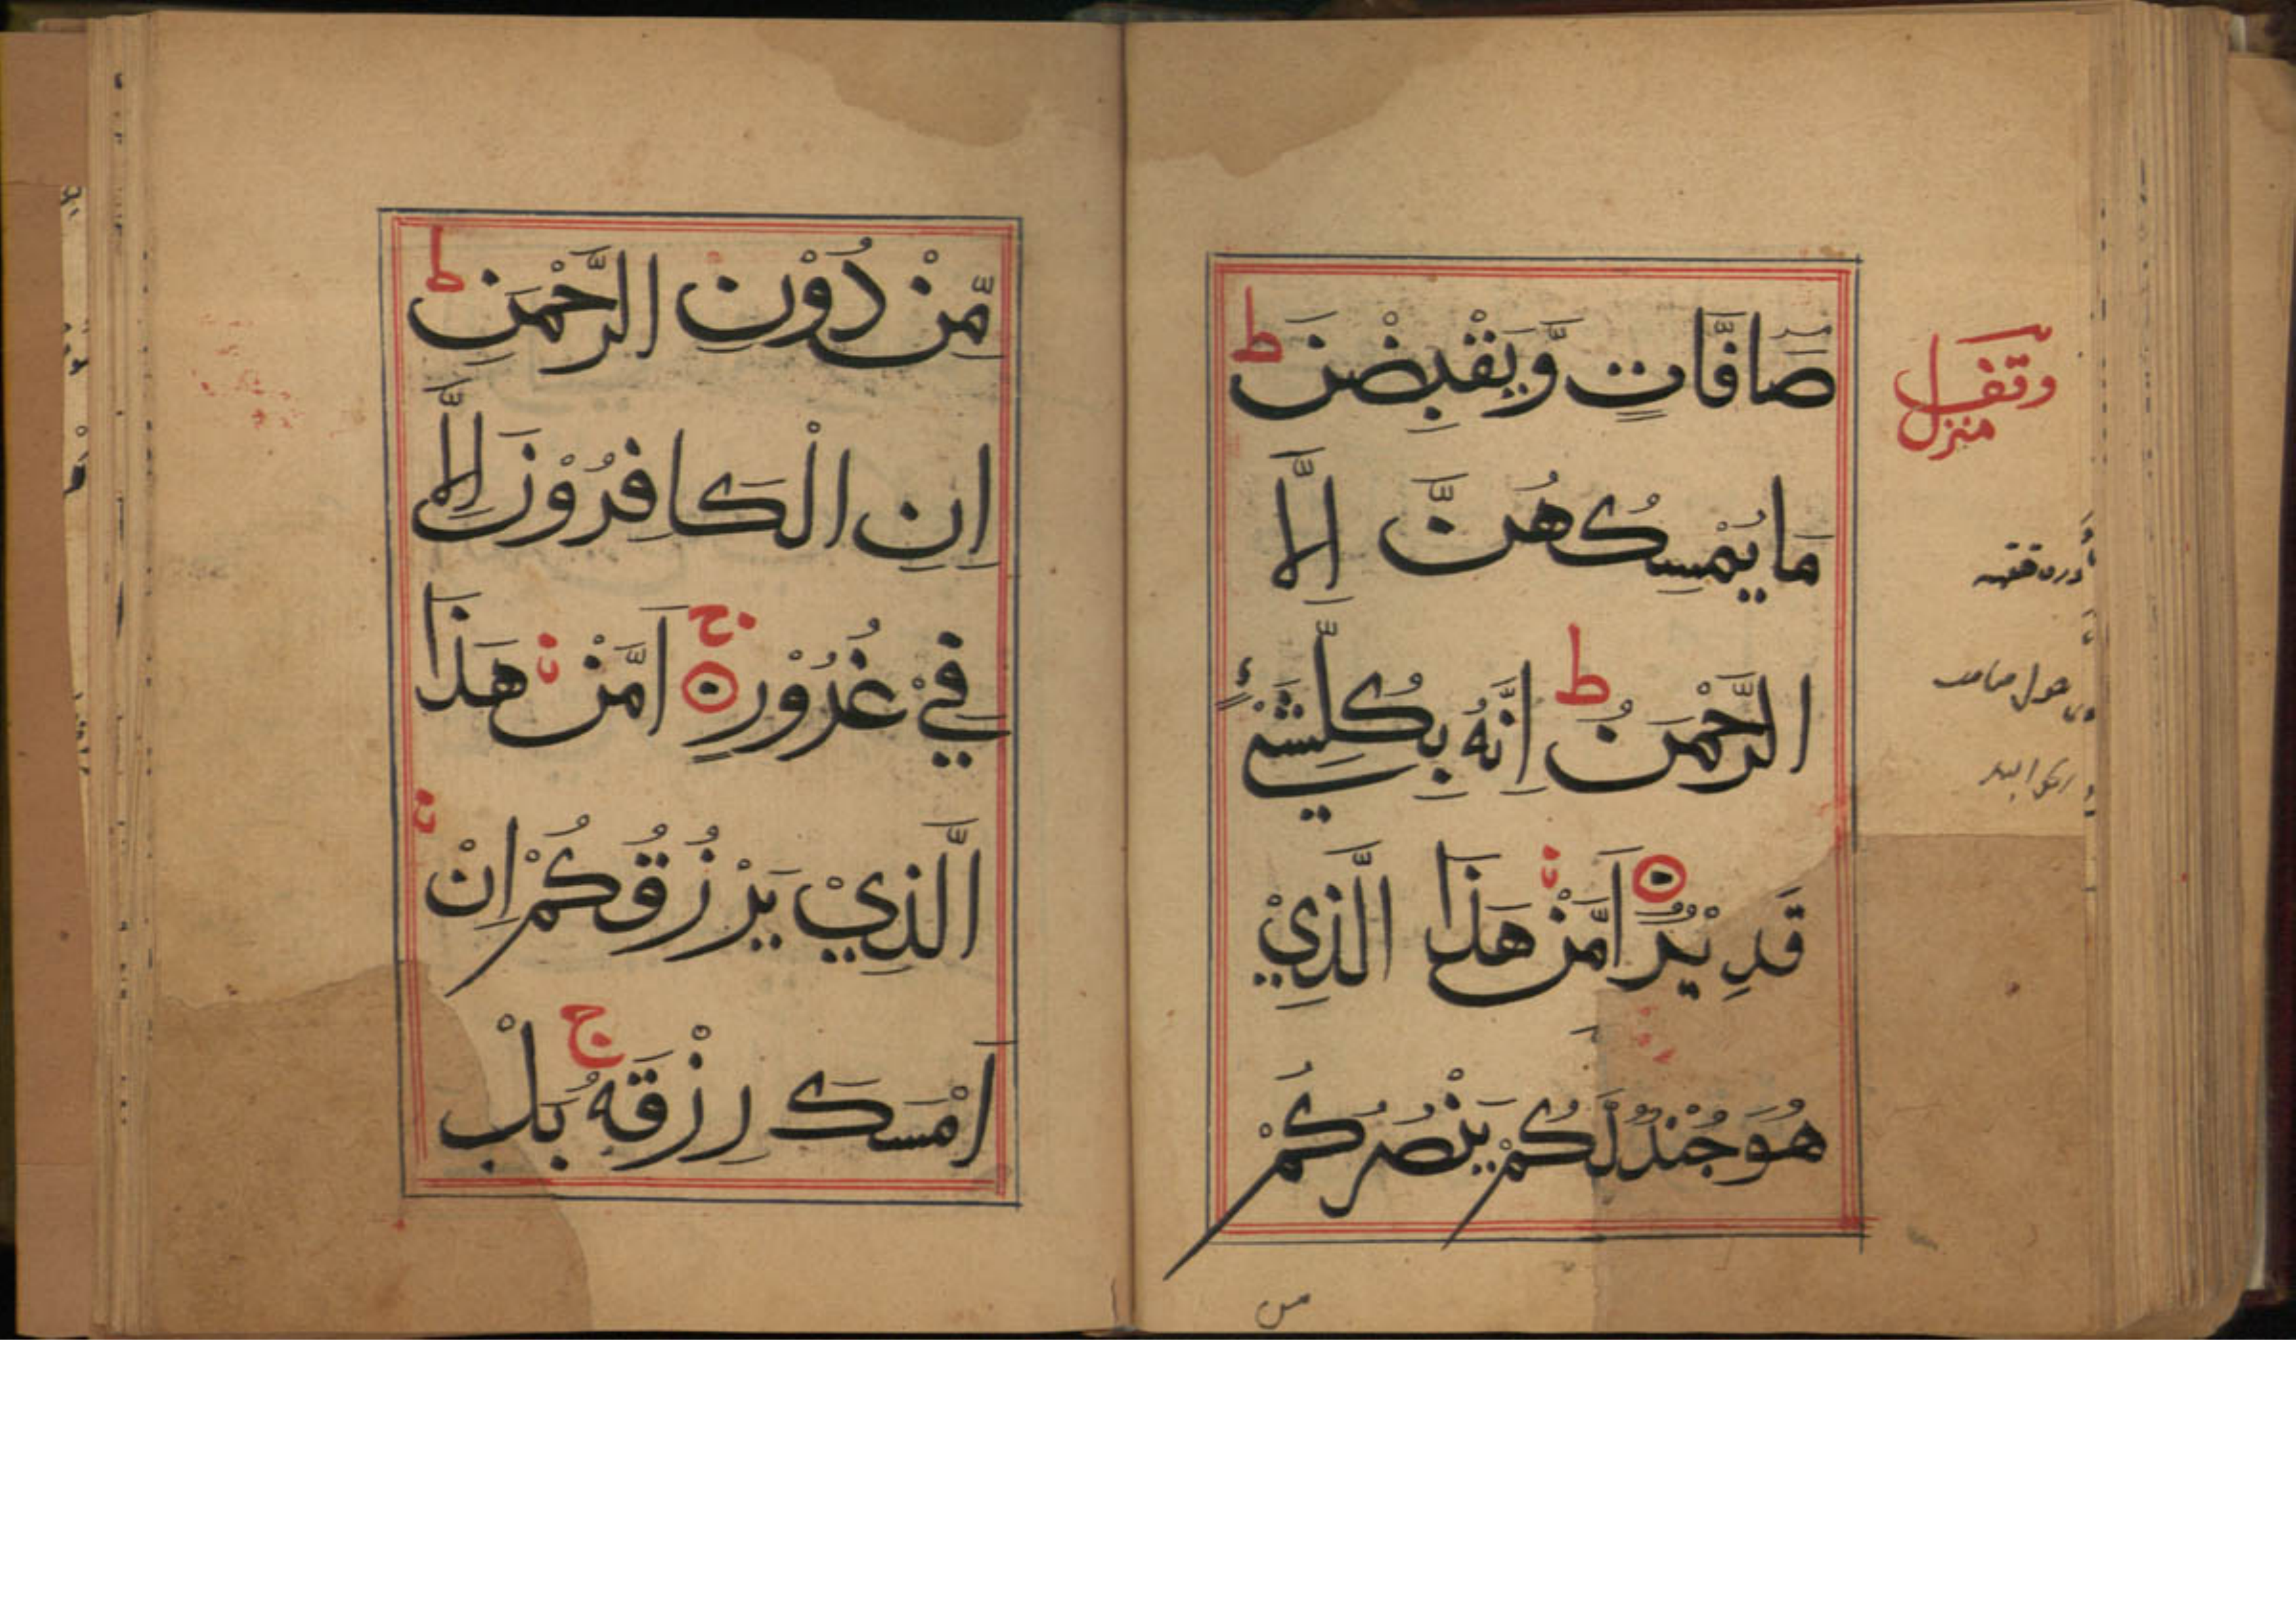 صَافَّاتٍ وَّيَقْبِضْنَ ط
مَا يُمْسِكُهُنَّ اِلَّا
الرَّحْمَنُ ط اِنَّهُ بِكُلِّ شَيْءٍ
قَدِيْرٌ اَمَّنْ هَذَا الَّذِيْ
هُوَ جُنْدٌ لَّكُمْ يَنْصُرُكُمْ
من
مِّنْ دُوْنِ الرَّحْمَنِ ط
اِنِ الْكَافِرُوْنَ اِلَّا
فِيْ غُرُوْرٍ ج اَمَّنْ هَذَا
الَّذِيْ يَرْزُقُكُمْ اِنْ
اَمْسَكَ رِزْقَهُ ج بَلْ
منزل